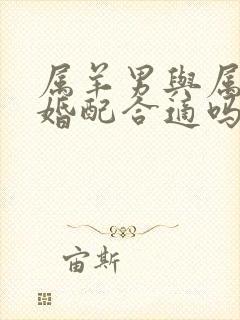 属羊男與属
婚配合適吗
宙斯